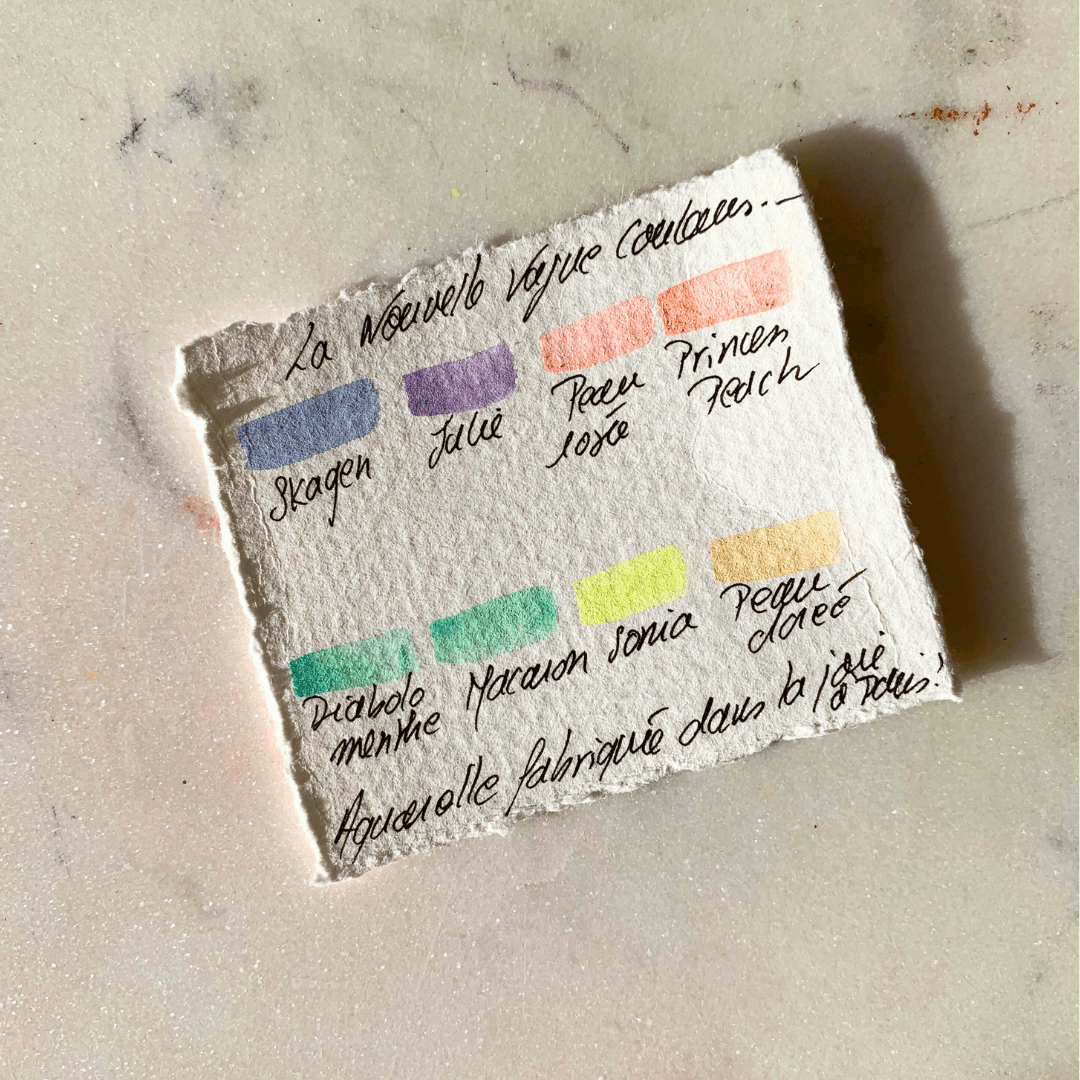 La Nouvelle Vague Couleurs.—
Skagen
Julie
Peau
rosée
Princess
Peach
Diabolo
menthe
Macaron
Sonia
Peau
dorée
Aquarelle fabriquée dans la joie
à Paris!